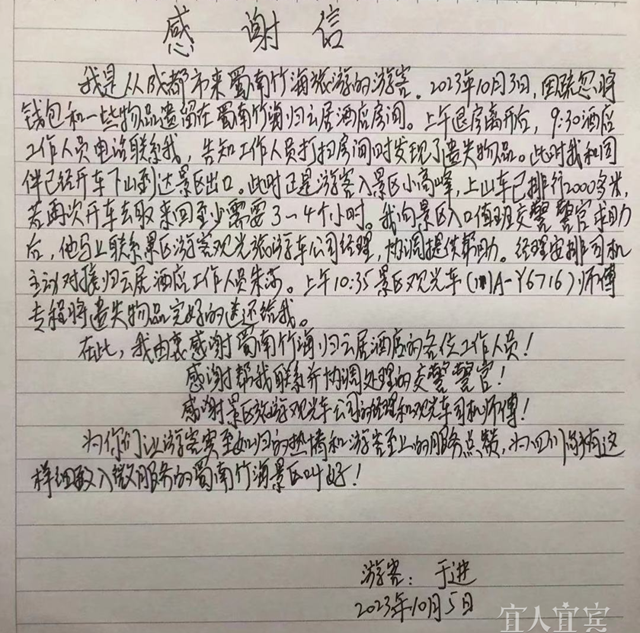 感谢信
我是从成都市来蜀南竹海旅游的游客。2023年10月3日，因疏忽将
钱包和一些物品遗留在蜀南竹海归云居酒店房间。上午退房离开后，9:30酒店
工作人员电话联系我，告知工作人员打扫房间时发现了遗失物品。此时我和同
伴已经开车下山到达景区出口。此时正是游客入景区小高峰，上山车已排行2000多米，
若再次开车去取来回至少需要3~4个小时。我向景区入口值班交警警官求助
后，他马上联系景区游客观光旅游车公司经理，协调提供帮助。经理安排司机
主动对接归云居酒店工作人员朱莎。上午10:35景区观光车(川A-Y6716)师傅
专程将遗失物品完好的送还给我。
在此，我由衷感谢蜀南竹海归云居酒店的各位工作人员！
感谢帮我联系并协调处理的交警警官！
感谢景区旅游观光车公司的经理和观光车司机师傅！
为你们让游客宾至如归的热情和游客至上的服务点赞，为四川能有这
样细致入微服务的蜀南竹海景区叫好！
游客：于进
2023年10月5日
宜人宜宾